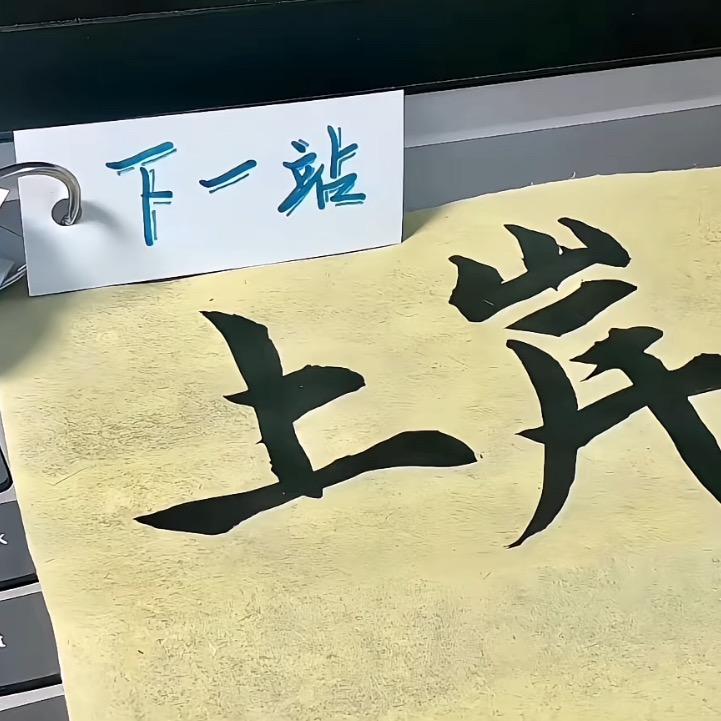 下一站
上岸
k